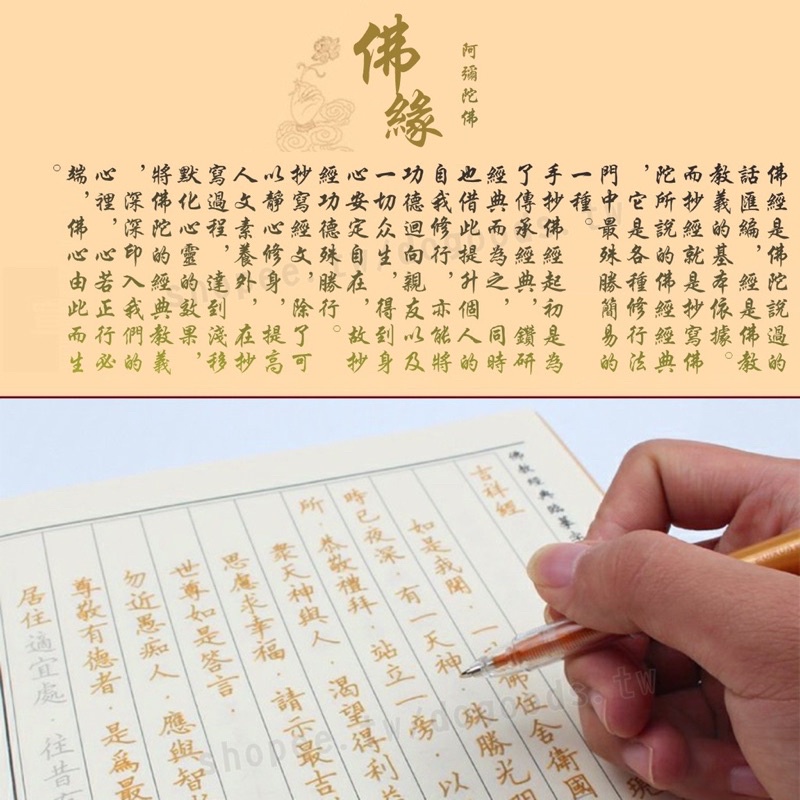 佛緣
阿彌陀佛
佛經是佛陀說過的
話匯編，經是佛教
教義的基本依據。
而抄經就是抄寫佛
陀所說的佛經經典
，它是各種修行法
門中最殊勝簡易的
一種。
手抄佛經起初是為
了傳承經典，鑽研
經典而為之，同時
也借此提升個人的
自我修行，亦能將
功德迴向親友以及
一切众生，得到身
心安定自在，故抄
經功德殊勝行。
抄寫經文，除了可
以靜心修身，提高
人文素養外，在抄
寫過程，達到淺移
默化心靈的效果，
將佛陀的經典教義
，深深印入我們的
心裡，心若正行必
端，佛心由此而生
。
shopee.tw/dogoods.tw
佛教經典臨摹
吉祥經
如是我聞．一 佛住舍衛國
時已夜深．有一天神．殊勝光
所．恭敬禮拜．站立一旁．以
眾天神與人．渴望得利
思慮求幸福．請示最吉
世尊如是答言．
勿近愚痴人．應與智
尊敬有德者．是爲最
居住適宜處．往昔
shopee.tw/dogoods.tw